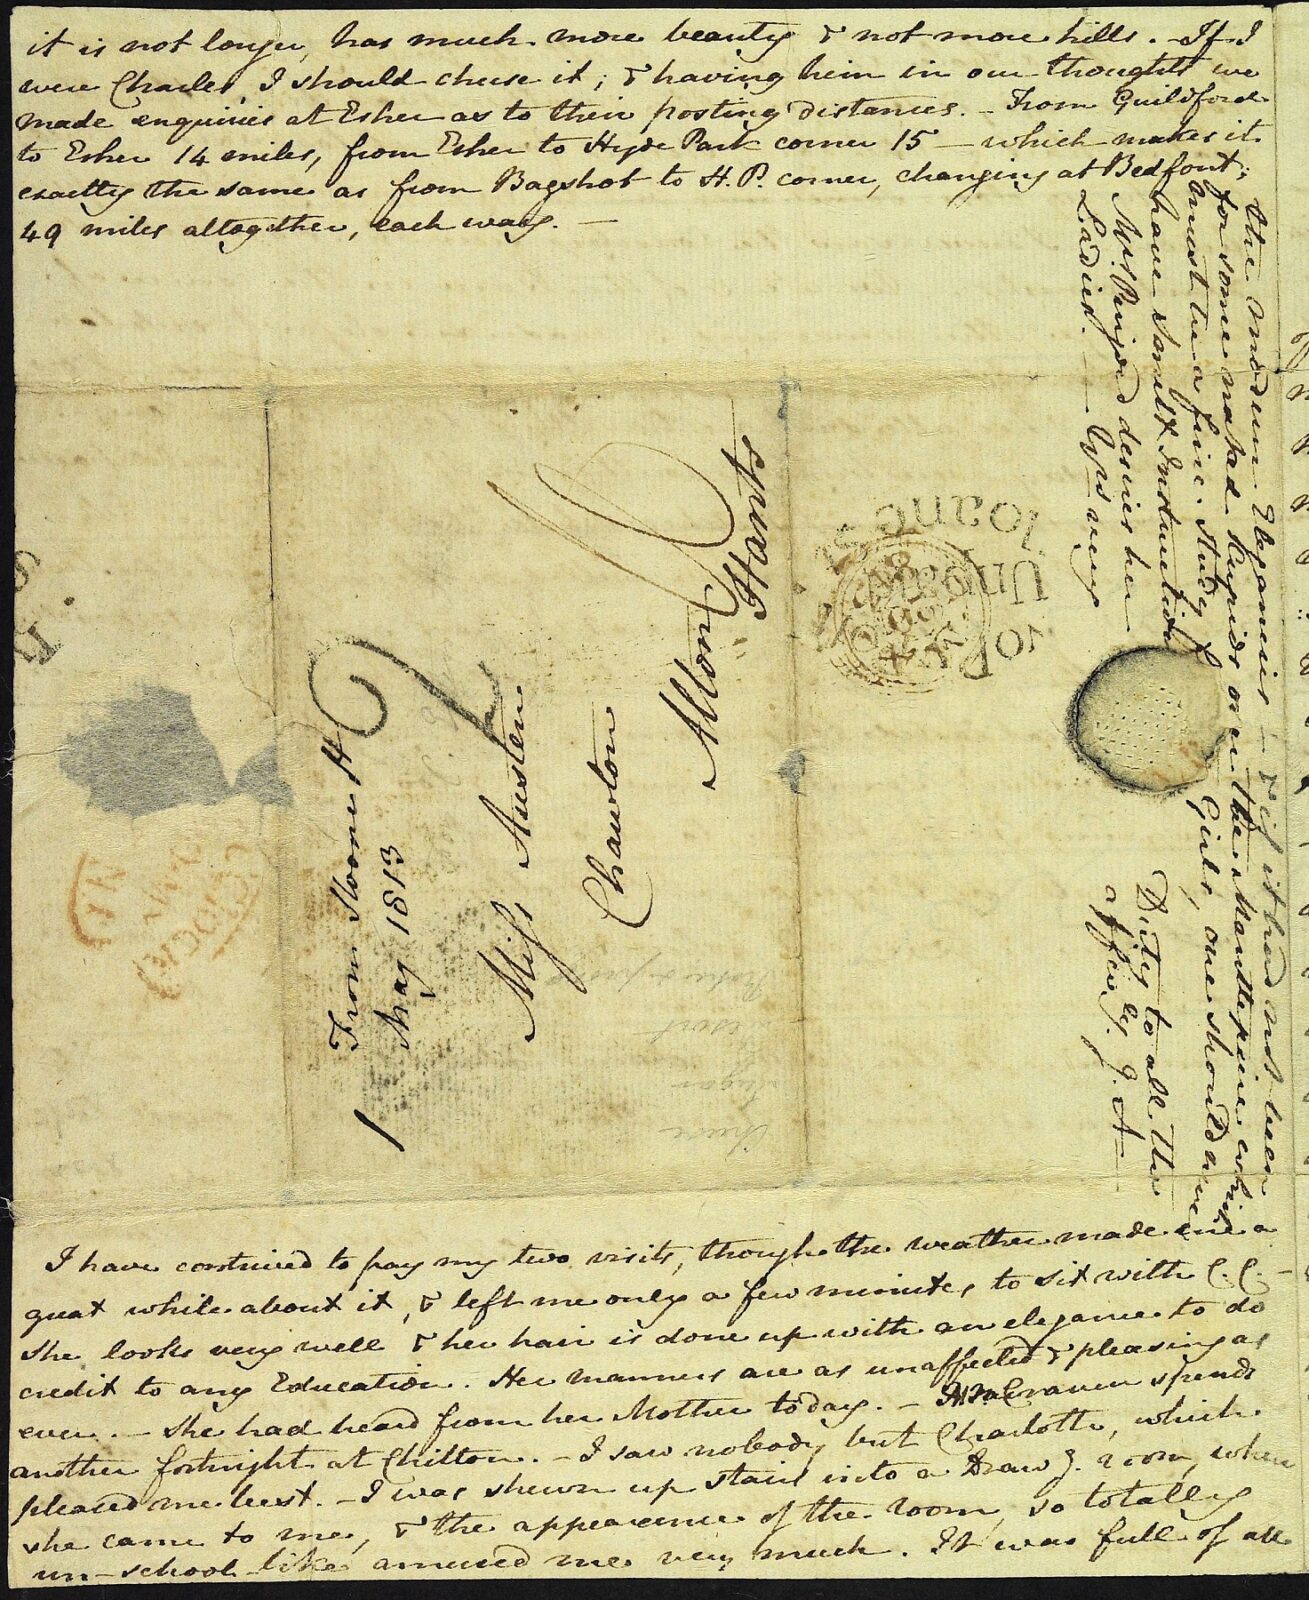 it is not longer, has much more beauty & not more hills. - If I
were Charles, I should chuse it; & having him in our thoughts we
made enquiries at Esher as to their posting distances. - From Guildford
to Esher 14 miles, from Esher to Hyde Park corner 15 - which makes it
exactly the same as from Bagshot to H. P. corner, changing at Bedfont;
49 miles altogether, each way. -
From Sloane St
May 1813
Miss Austen
Chawton
Alton
Hants
I have contrived to pay my two visits, though the weather made me a
great while about it, & left me only a few minutes to sit with C. C. -
She looks very well & her hair is done up with an elegance to do
credit to any Education. Her manners are as unaffected & pleasing as
ever. - She had heard from her Mother today. - Mrs Craven spends
another fortnight at Chilton. - I saw nobody but Charlotte, which
pleased me best. - I was shewn up stairs into a Drawg. room, where
she came to me, & the appearance of the room, so totally
un-school-like amused me very much. It was full of all
the modern Elegancies - & if it had not been
for some naked Cupids over the Mantlepeice, which
must be a fine study for Girls, one should never
have Smelt Instruction.
Mrs Perigord desires her Duty to all the
Ladies. - Yrs very affecly. J. A-